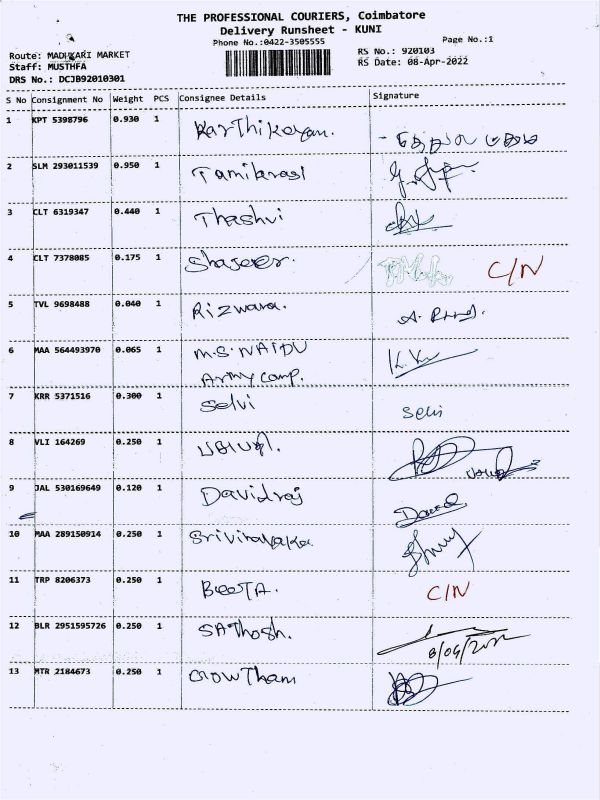 THE PROFESSIONAL COURIERS, Coimbatore
Delivery Runsheet - KUNI
Phone No.:0422-3505555
Page No.:1
Route: MADUKARI MARKET
RS No.: 920103
Staff: MUSTHFA
RS Date: 08-Apr-2022
DRS No.: DCJB92010301
S No Consignment No Weight PCS Consignee Details Signature
1 KPT 5398796 0.930 1 Karthikeyan.
2 SLM 293011539 0.950 1 Tamilarasi
3 CLT 6319347 0.440 1 Thashvi
4 CLT 7378085 0.175 1 Shajeer. C/N
5 TVL 9698488 0.040 1 Rizwana.
6 MAA 564493970 0.065 1 M.S. NAIDU
Army Camp.
7 KRR 5371516 0.300 1 Selvi Selvi
8 VLI 164269 0.250 1
9 JAL 530169649 0.120 1 Davidraj David
10 MAA 289150914 0.250 1 Srivinayaka
11 TRP 8206373 0.250 1 BeeTA. C/N
12 BLR 2951595726 0.250 1 SAThosh. 8/04/2022
13 MTR 2184673 0.250 1 GowTham